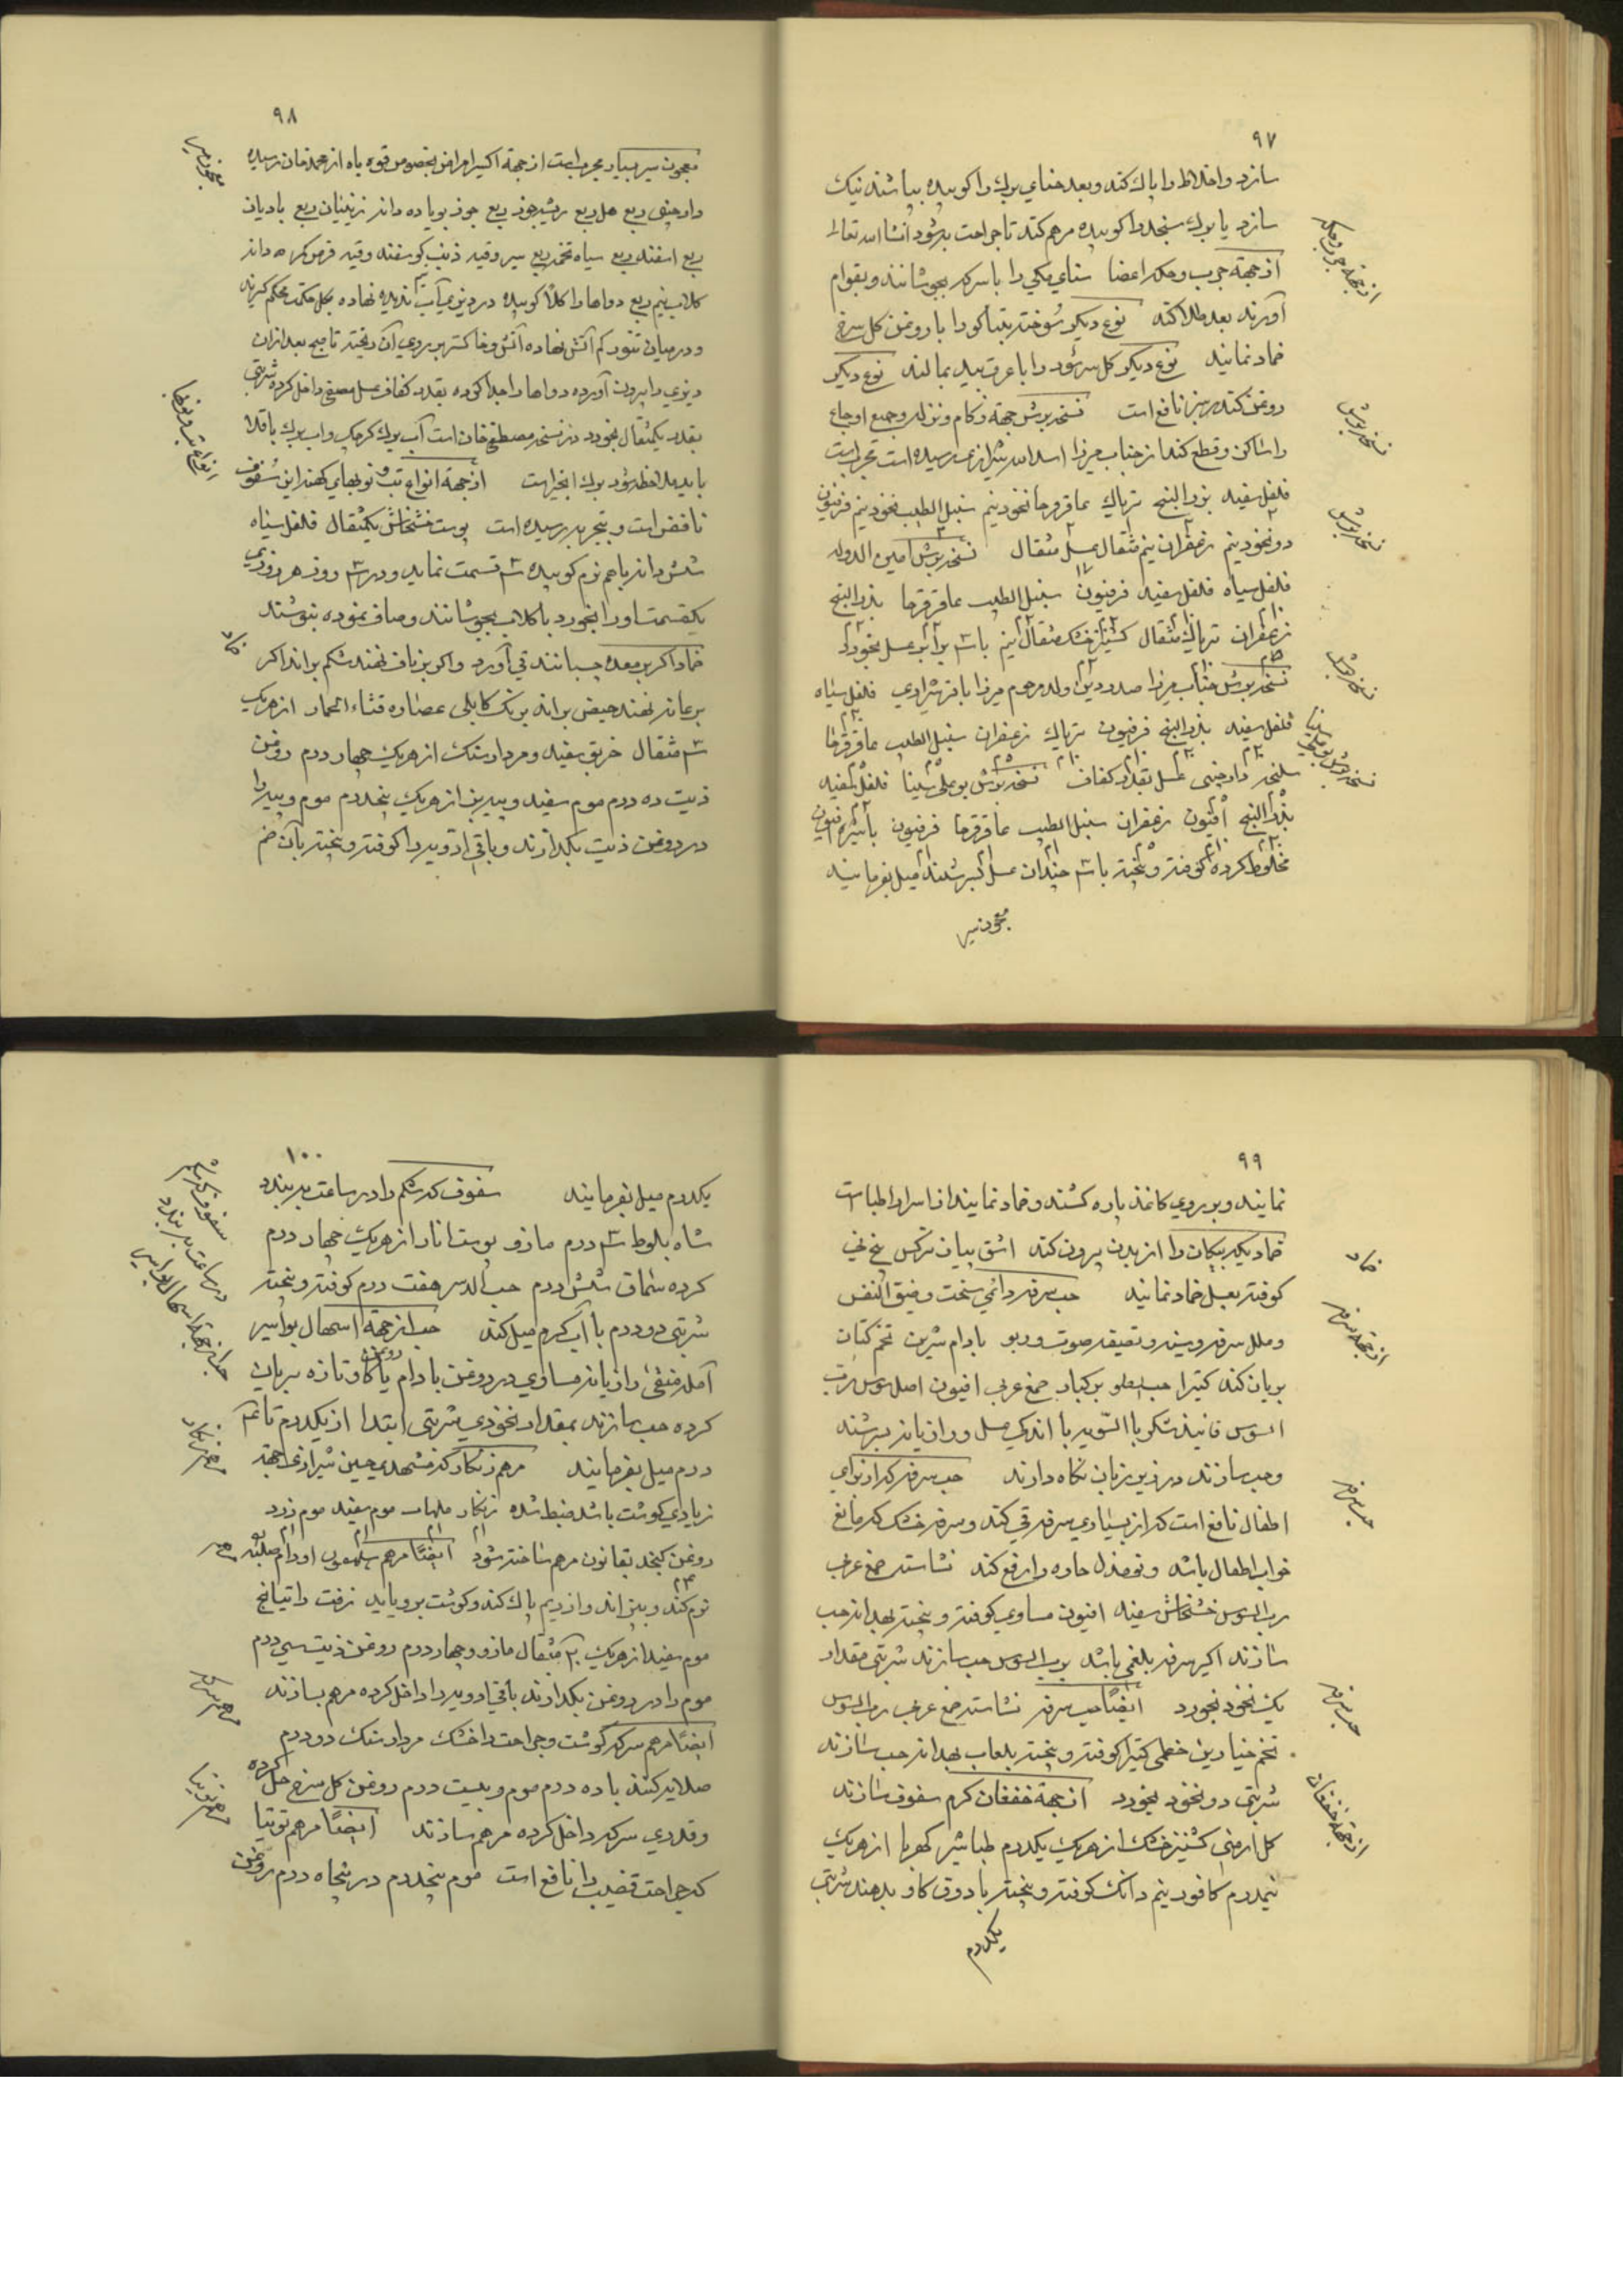 ۹۷
سازد و اخلاط را پاک کند و بعد حنای برک را کوبیده بپاشند نیک
سازد یا برک سنجد را کوبیده مرهم کند تا جراحت به شود انشاالله تعالی
ازجهة جرب و حکه اعضا سنای مکی را با سرکه بجوشانند و بقوام
آورند بعد طلا کند نوع دیکر سوخته تنباکو را با روغن کل سرخ
ضماد نمایند نوع دیکر کل سرشور را با عرق بید بمالند نوع دیکر
روغن کنده نیز نافع است نسخه برش جهة زکام و نزله و جمیع اوجاع
را ساکن و قطع کند از جناب میرزا اسدالله شیرازی رسیده است مجربست
فلفل سفید بزرالبنج تریاک عاقرقرحا نخود نیم سنبل الطیب نخود نیم فرفیون
دو نخود نیم زعفران نیم مثقال عسل مثقال نسخه برش امین الدوله
فلفل سیاه فلفل سفید فرفیون سنبل الطیب عاقرقرحا بذرالبنج
زعفران تریاک مثقال کشنیز خشک مثقال نیم با سه برابر عسل بخورد
نسخه برش جناب میرزا صدرالدین ولد مرحوم میرزا باقر شیرازی فلفل سیاه
فلفل سفید بذرالبنج فرفیون تریاک زعفران سنبل الطیب عاقرقرحا
سلیخه دارچینی عسل بقدر کفاف نسخه برش بوعلی سینا فلفل سفید
بذرالبنج افیون زعفران سنبل الطیب عاقرقرحا فرفیون
مخلوط کرده کوفته و بیخته با سه چندان عسل بسرشند میل بفرمایند
معجون سیر
ازجهة جرب و حکه
نسخه برش
نسخه برش
نسخه برش
نسخه برش بوعلی سینا
۹۸
معجون سیر بسیار مجربست ازجهة اکثر امراض بخصوص قوه باه از محمدخان رسیده
دارچینی ربع هل ربع ریشه جوز ربع جوز بویا ده دانه زینیان ربع بادیان
ربع اسفند ربع سیاه تخمه ربع سیر وقیه ذنب کوسفند وقیه قرص کمر ده دانه
کلاب نیم ربع دواها را کلاً کوبیده در دیزی آب ندیده نهاده بکل حکمت محکم کیرند
و در میان تنور کم آتش نهاده آتش و خاکستر بر روی آن ریخته تا صبح بعد ازان
دیزی را بیرون آورده دواها را جدا کرده بقدر کفاف عسل مصفی داخل کرده شربتی
بقدر یکمثقال بخورد در نسخه مصطفی خان است آب برک کرچک و آب برک باقلا
باید ملاحظه شود برک انجیر است ازجهة انواع تب و نوبهای کهنه این سفوف
نافع است و بتجربه رسیده است پوست خشخاش یکمثقال فلفل سیاه
شش دانه باهم نرم کوبیده سه قسمت نماید و در سه روز هر روزی
یکقسمت او را بخورد با کلاب بجوشانند و صاف نموده بنوشند
ضماد اکر بر معده چسبانند قی آورد و اکر بر ناف نهند شکم براند اکر
بر عانه نهند حیض براند برنک کابلی عصاره قثاء الحمار از هریک
سه مثقال خربق سفید و مردارسنک از هریک چهار درم روغن
زیت ده درم موم سفید و پیه بز از هریک پنجدرم موم و پیه را
در روغن زیت بکدازند و باقی ادویه را کوفته و بیخته بآن ضم
معجون سیر
انواع تب و نوبها
ضماد
۹۹
نمایند و بر روی کاغذ پاره کشند و ضماد نمایند از اسرار اطبا است
ضماد یکه پیکان را از بدن بیرون کند اشق پیاز نرکس بیخ نی
کوفته بعسل ضماد نمایند حب سرفه دائمی سخت و ضیق النفس
و علل سرفه و سینه و تصفیه صوت و ربو بادام شیرین تخم کتان
بریان کنند کتیرا حب صنوبر کبار صمغ عربی افیون اصل سوس رب
السوس فانیذ شکر بالسویه با اندکی عسل و رازیانه بسرشند
و حب سازند در زیر زبان نکاه دارند حب سرفه که از برای
اطفال نافع است که از بسیاری سرفه قی کند و سرفه خشک که مانع
خواب اطفال باشد و نوازل حاره را رفع کند نشاسته صمغ عربی
رب السوس خشخاش سفید افیون مساوی کوفته و بیخته بهدانه حب
سازند اکر سرفه بلغمی باشد برب السوس حب سازند شربتی مقدار
یک نخود بخورد ایضاً حب سرفه نشاسته صمغ عربی رب السوس
تخم خیارین خطمی کتیرا کوفته و بیخته بلعاب بهدانه حب سازند
شربتی دو نخود بخورد ازجهة خفقان کرم سفوف سازند
کل ارمنی کشنیز خشک از هریک یکدرم طباشیر کهربا از هریک
نیمدرم کافور نیم دانک کوفته و بیخته با دوق کاو بدهند شربتی
یکدرم
ضماد
ازجهة سرفه
حب سرفه
حب سرفه
ازجهة خفقان
۱۰۰
یکدرم میل بفرمایند سفوف که شکم را در ساعت به بندد
شاه بلوط سه درم مازو پوست انار از هریک چهار درم
کرده سماق شش درم حب الاس هفت درم کوفته و بیخته
شربتی دو درم با آب کرم میل کند حب ازجهة اسهال بواسیر
آمله منقی رازیانه مساوی در روغن بادام یا روغن کاو تازه بریان
کرده حب سازند بمقدار نخودی شربتی ابتدا از یکدرم تا سه
درم میل بفرمایند مرهم زنکار که مشهدی حسین شیرازی جهة
زیادی کوشت باشد ضبط شده زنکار موم سفید موم زرد
روغن کنجد بقانون مرهم ساخته شود ایضاً مرهم اورام صلبه
نرم کند و بپزاند و از ریم پاک کند و کوشت برویاند زفت راتیانج
موم سفید از هریک مثقال مازو چهار درم روغن زیت سی درم
موم را در روغن بکدازند باقی ادویه را داخل کرده مرهم بسازند
ایضاً مرهم سرکه کوشت و جراحت را خشک مردارسنک دو درم
صلایه کنند با ده درم موم و بیست درم روغن کل سرخ حل کرده
و قدری سرکه داخل کرده مرهم سازند ایضاً مرهم توتیا
که جراحت قضیب را نافع است موم پنجدرم در پنجاه درم روغن
سفوف که شکم
در ساعت به بندد
حب ازجهة اسهال بواسیر
مرهم زنکار
مرهم
مرهم سرکه
مرهم توتیا